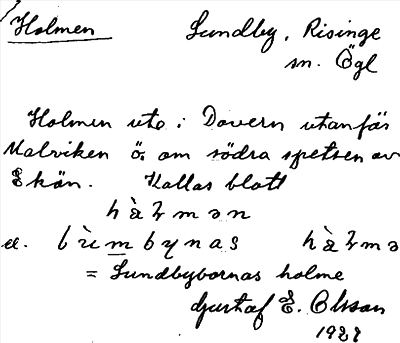 Holmen Lundby, Risinge
sn. Ögl
Holmen ute i Dovern utanför
Malviken ö. om södra spetsen av
Ekön. Kallas blott
hὰɫmən
el. lὺmbynas hὰɫmə
= Lundbybornas holme
Gustaf E. Olsson
1929